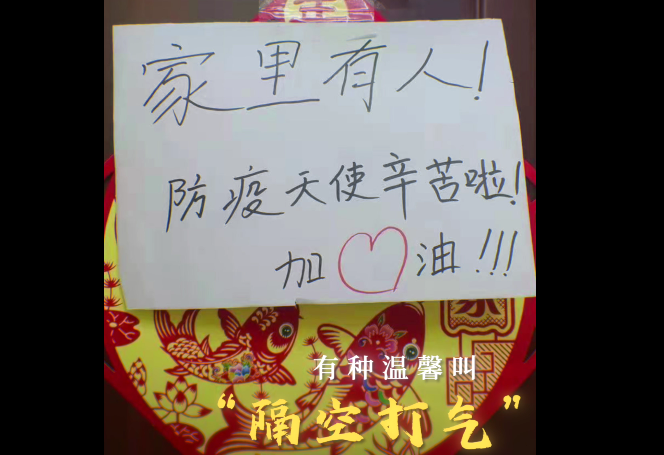 家里有人!
防疫天使辛苦啦!
加油!!!
有种温馨叫
“隔空打气”